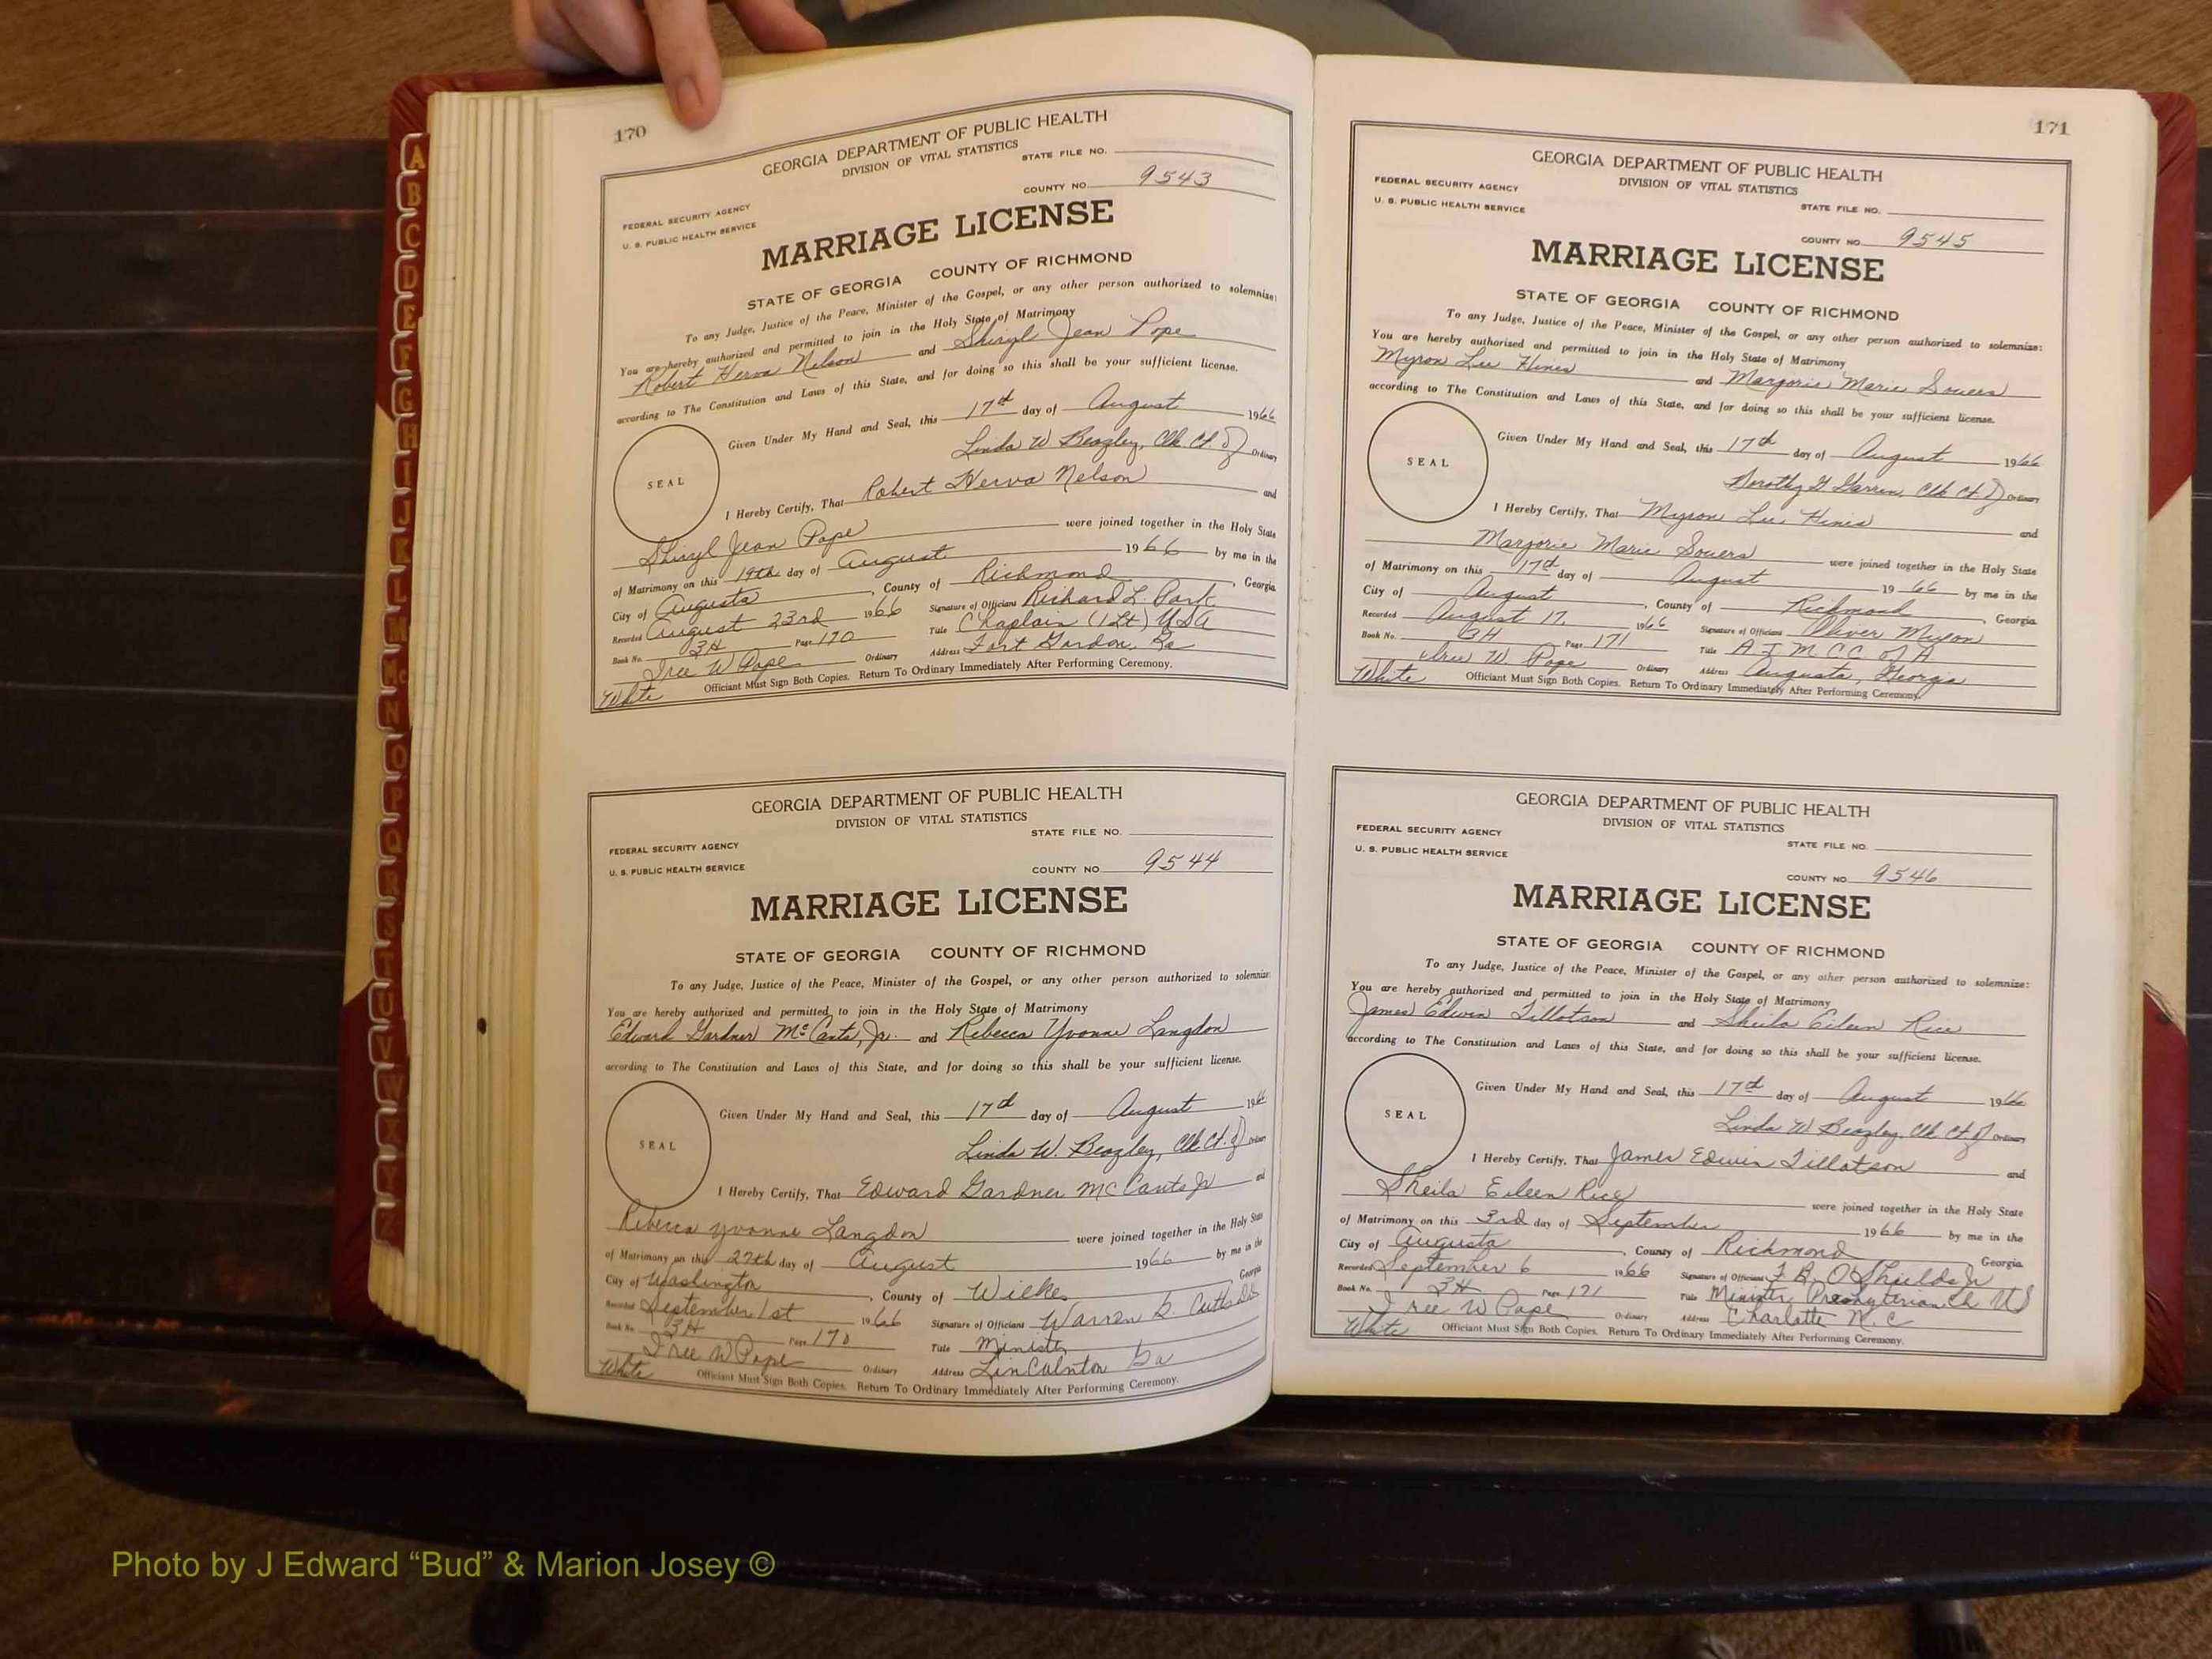 170
GEORGIA DEPARTMENT OF PUBLIC HEALTH
DIVISION OF VITAL STATISTICS
STATE FILE NO.
FEDERAL SECURITY AGENCY
U. S. PUBLIC HEALTH SERVICE
COUNTY NO. 9543
MARRIAGE LICENSE
STATE OF GEORGIA COUNTY OF RICHMOND
To any Judge, Justice of the Peace, Minister of the Gospel, or any other person authorized to solemnize:
You are hereby authorized and permitted to join in the Holy State of Matrimony
Robert Herva Nelson and Shiryl Jean Pope
according to The Constitution and Laws of this State, and for doing so this shall be your sufficient license.
Given Under My Hand and Seal, this 17th day of August 1966
SEAL
Linda W. Beazley, Clk. Ct. of Ordinary
I Hereby Certify, That Robert Herva Nelson and
Shiryl Jean Pope were joined together in the Holy State
of Matrimony on this 19th day of August 1966 by me in the
City of Augusta, County of Richmond, Georgia
Recorded August 23rd 1966 Signature of Officiant Richard L. Park
Book No. 3H Page 170 Title Chaplain (1Lt) USA
Iree W Pope Ordinary Address Fort Gordon, Ga
White Officiant Must Sign Both Copies. Return To Ordinary Immediately After Performing Ceremony.
GEORGIA DEPARTMENT OF PUBLIC HEALTH
DIVISION OF VITAL STATISTICS
STATE FILE NO.
FEDERAL SECURITY AGENCY
U. S. PUBLIC HEALTH SERVICE
COUNTY NO. 9544
MARRIAGE LICENSE
STATE OF GEORGIA COUNTY OF RICHMOND
To any Judge, Justice of the Peace, Minister of the Gospel, or any other person authorized to solemnize:
You are hereby authorized and permitted to join in the Holy State of Matrimony
Edward Gardner McCants, Jr. and Rebecca Yvonne Langdon
according to The Constitution and Laws of this State, and for doing so this shall be your sufficient license.
Given Under My Hand and Seal, this 17th day of August 1966
SEAL
Linda W. Beazley, Clk. Ct. of Ordinary
I Hereby Certify, That Edward Gardner McCants Jr and
Rebecca Yvonne Langdon were joined together in the Holy State
of Matrimony on this 27th day of August 1966 by me in the
City of Washington, County of Wilkes Georgia
Recorded September 1st 1966 Signature of Officiant Warren G.
Book No. 3H Page 170 Title Minister
Iree W Pope Ordinary Address Lincolnton Ga
White Officiant Must Sign Both Copies. Return To Ordinary Immediately After Performing Ceremony.
171
GEORGIA DEPARTMENT OF PUBLIC HEALTH
DIVISION OF VITAL STATISTICS
FEDERAL SECURITY AGENCY
U. S. PUBLIC HEALTH SERVICE
STATE FILE NO.
COUNTY NO. 9545
MARRIAGE LICENSE
STATE OF GEORGIA COUNTY OF RICHMOND
To any Judge, Justice of the Peace, Minister of the Gospel, or any other person authorized to solemnize:
You are hereby authorized and permitted to join in the Holy State of Matrimony
Myron Lee Hines and Marjorie Marie Souers
according to The Constitution and Laws of this State, and for doing so this shall be your sufficient license.
Given Under My Hand and Seal, this 17th day of August 1966
SEAL
Dorothy H Garren, Clk Ct. of Ordinary
I Hereby Certify, That Myron Lee Hines and
Marjorie Marie Souers were joined together in the Holy State
of Matrimony on this 17th day of August 1966 by me in the
City of August, County of Richmond Georgia
Recorded August 17, 1966 Signature of Officiant Oliver Mixon
Book No. 3H Page 171 Title A J M C.C. of A.
Iree W. Pope Ordinary Address Augusta, Georgia
White Officiant Must Sign Both Copies. Return To Ordinary Immediately After Performing Ceremony.
GEORGIA DEPARTMENT OF PUBLIC HEALTH
DIVISION OF VITAL STATISTICS
FEDERAL SECURITY AGENCY
U. S. PUBLIC HEALTH SERVICE
STATE FILE NO.
COUNTY NO. 9546
MARRIAGE LICENSE
STATE OF GEORGIA COUNTY OF RICHMOND
To any Judge, Justice of the Peace, Minister of the Gospel, or any other person authorized to solemnize:
You are hereby authorized and permitted to join in the Holy State of Matrimony
James Edwin Tillotson and Sheila Eileen Rice
according to The Constitution and Laws of this State, and for doing so this shall be your sufficient license.
Given Under My Hand and Seal, this 17th day of August 1966
SEAL
Linda W Beazley, Clk Ct of Ordinary
I Hereby Certify, That James Edwin Tillotson and
Sheila Eileen Rice were joined together in the Holy State
of Matrimony on this 3rd day of September 1966 by me in the
City of Augusta, County of Richmond Georgia.
Recorded September 6 1966 Signature of Officiant F. B. O'Shields Jr
Book No. 3H Page 171 Title Minister Presbyterian Ch US
Iree W Pope Ordinary Address Charlotte N.C
White Officiant Must Sign Both Copies. Return To Ordinary Immediately After Performing Ceremony.
A
B
C
D
E
F
G
H
I
J
K
L
M
Mc
N
O
P
Q
R
S
T
U
V
W
X
Y
Z
Photo by J Edward “Bud” & Marion Josey ©